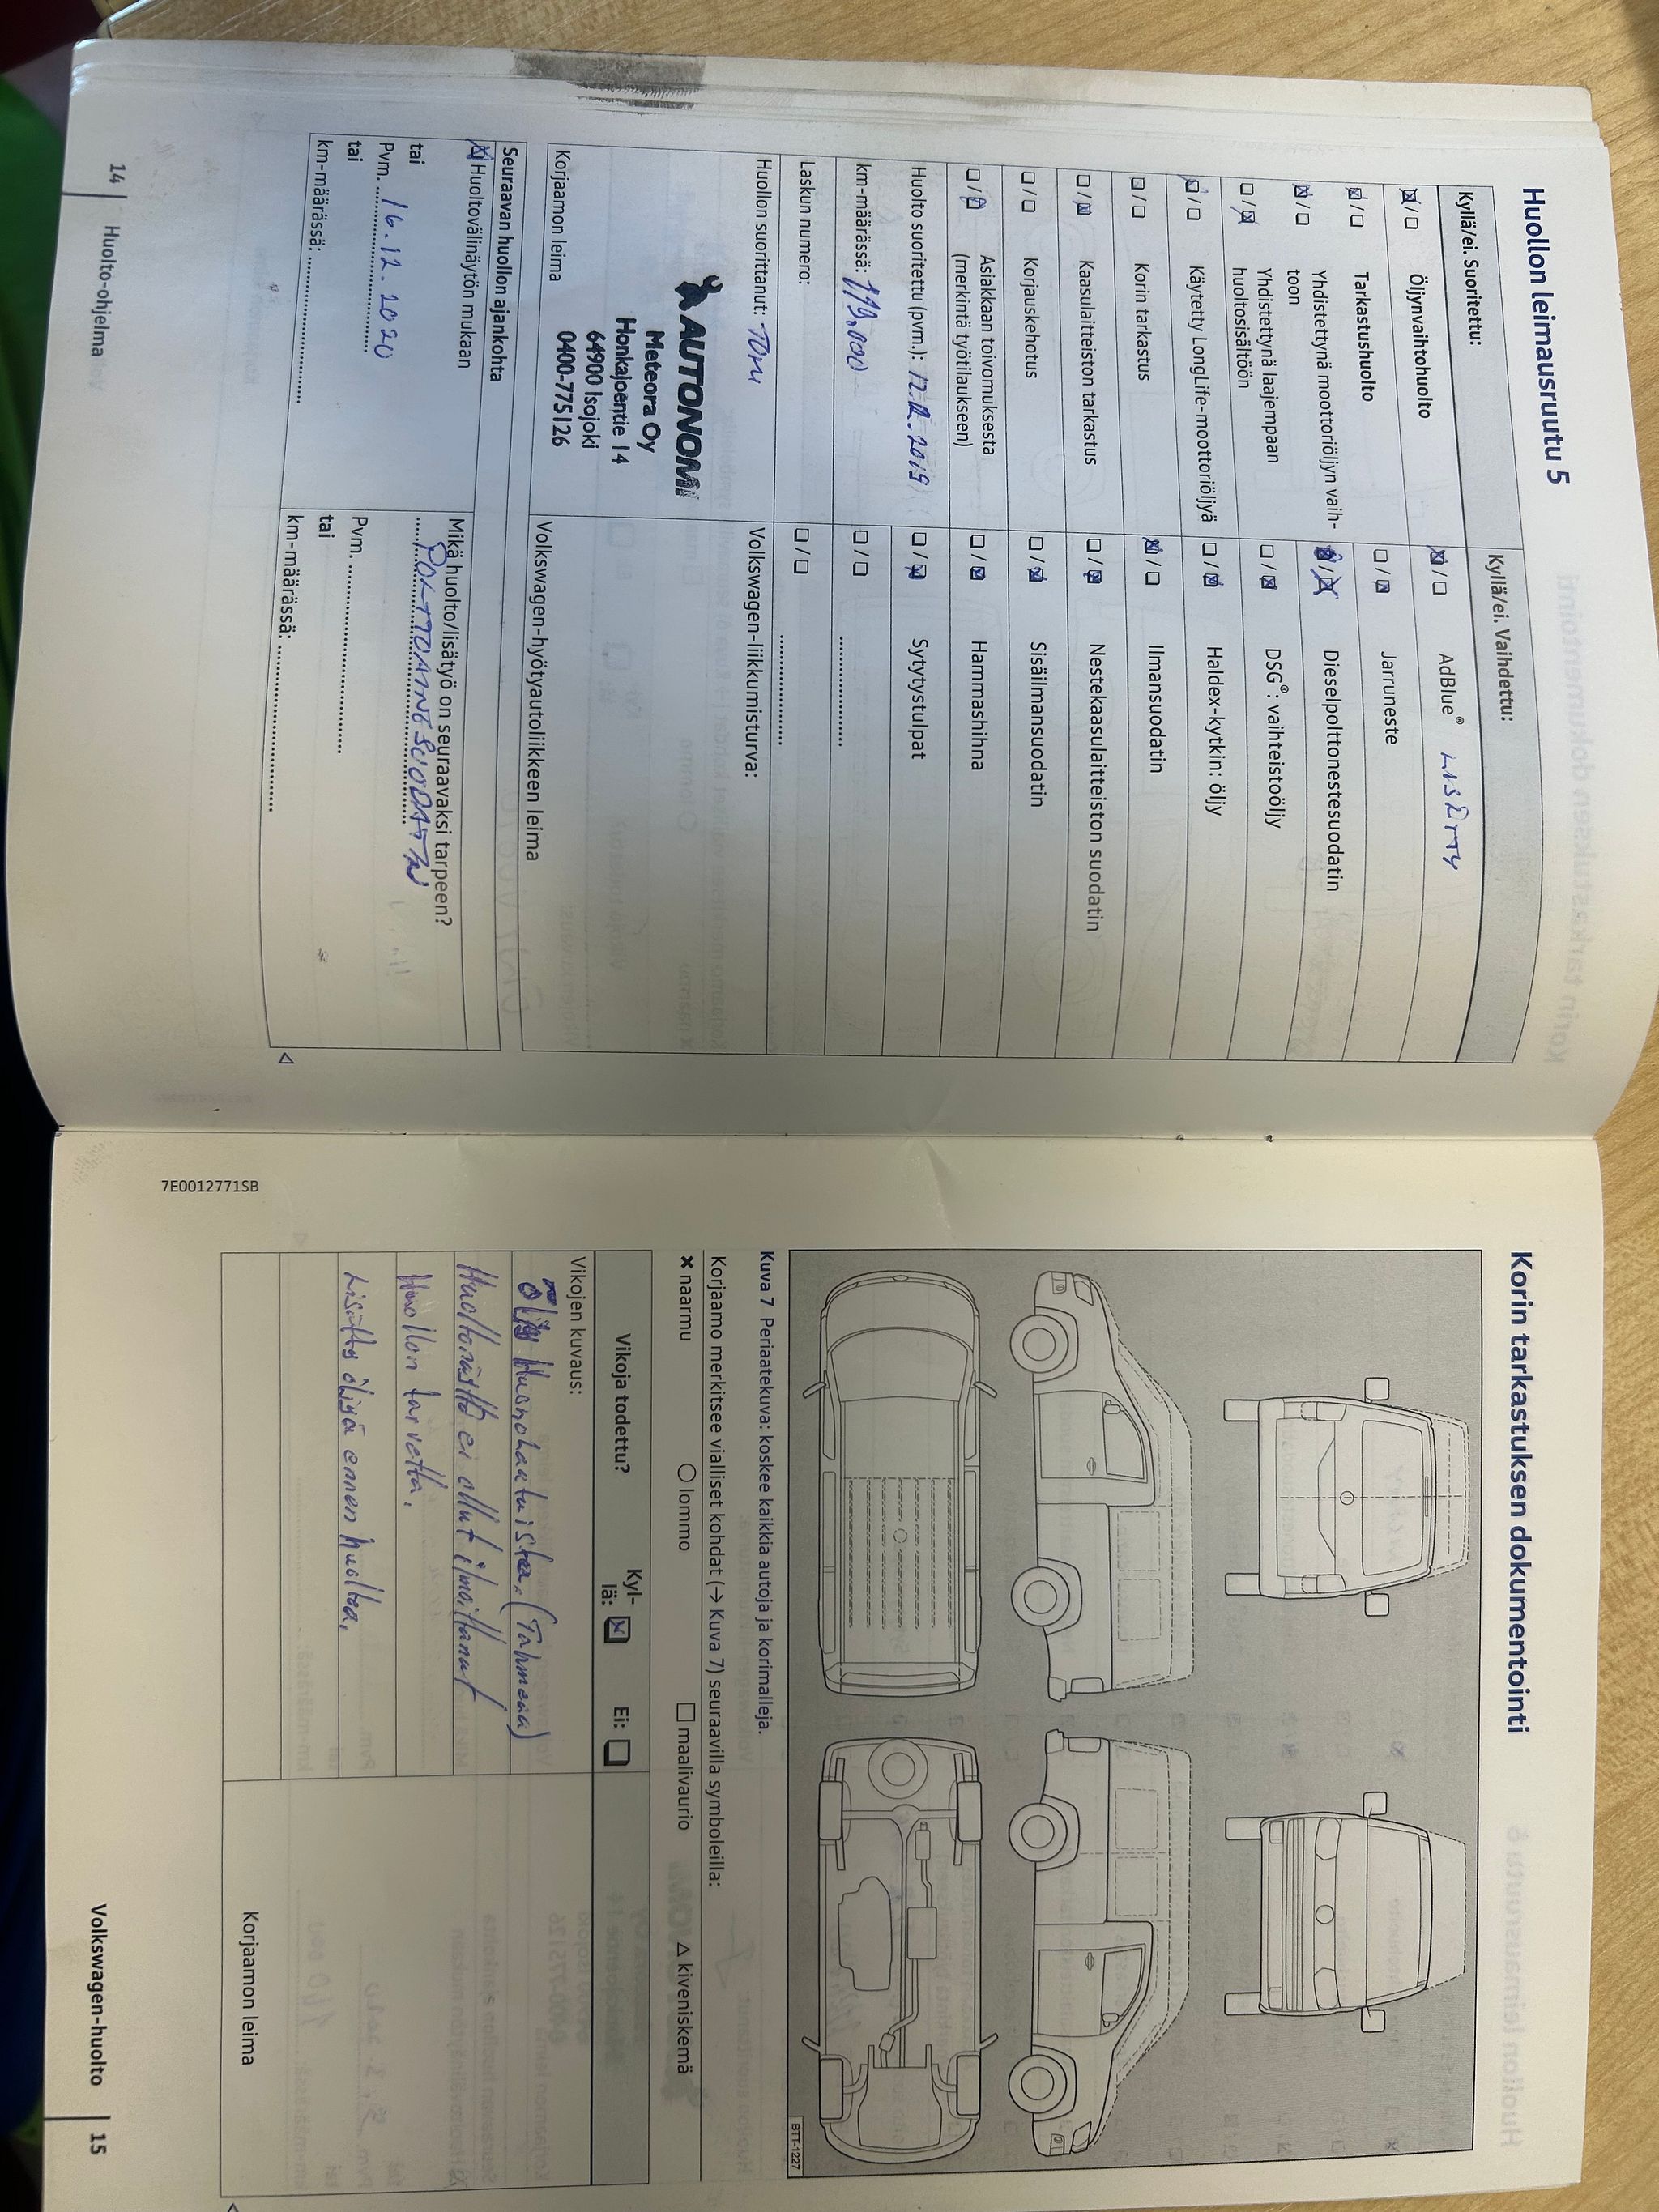 Huollon leimausruutu 5
Kyllä/ei. Suoritettu:
Kyllä/ei. Vaihdettu:
Öljynvaihtohuolto
AdBlue® LISÄTTY
Tarkastushuolto
Jarruneste
Yhdistettynä moottoriöljyn vaih-
toon
Dieselpolttonestesuodatin
Yhdistettynä laajempaan
huoltosisältöön
DSG®: vaihteistoöljy
Käytetty LongLife-moottoriöljyä
Haldex-kytkin: öljy
Korin tarkastus
Ilmansuodatin
Kaasulaitteiston tarkastus
Nestekaasulaitteiston suodatin
Korjauskehotus
Sisäilmansuodatin
Asiakkaan toivomuksesta
(merkintä työtilaukseen)
Hammashihna
Huolto suoritettu (pvm.): 12.12.2019
Sytytystulpat
km-määrässä:
Laskun numero:
Huollon suorittanut: TOMI
Volkswagen-liikkumisturva:
AUTONOMi
Meteora Oy
Honkajoentie 14
64900 Isojoki
0400-775126
Korjaamon leima
Volkswagen-hyötyautoliikkeen leima
Seuraavan huollon ajankohta
Huoltovälinäytön mukaan
Mikä huolto/lisätyö on seuraavaksi tarpeen?
POLTTOAINESUODATIN
tai
Pvm. 16.12.2020
Pvm.
tai
tai
km-määrässä:
km-määrässä:
14 Huolto-ohjelma
7E0012771SB
Korin tarkastuksen dokumentointi
BTT-1227
Kuva 7 Periaatekuva: koskee kaikkia autoja ja korimalleja.
Korjaamo merkitsee vialliset kohdat (→ Kuva 7) seuraavilla symboleilla:
✖ naarmu ○ lommo □ maalivaurio △ kiveniskemä
Vikoja todettu? Kyl-
lä: Ei:
Vikojen kuvaus:
öljy Huonolaatuista, (Tahmeaa)
Huoltonäyttö ei ollut ilmoittanut
Huollon tarvetta.
Lisätty öljyä ennen huoltoa,
Korjaamon leima
Volkswagen-huolto 15